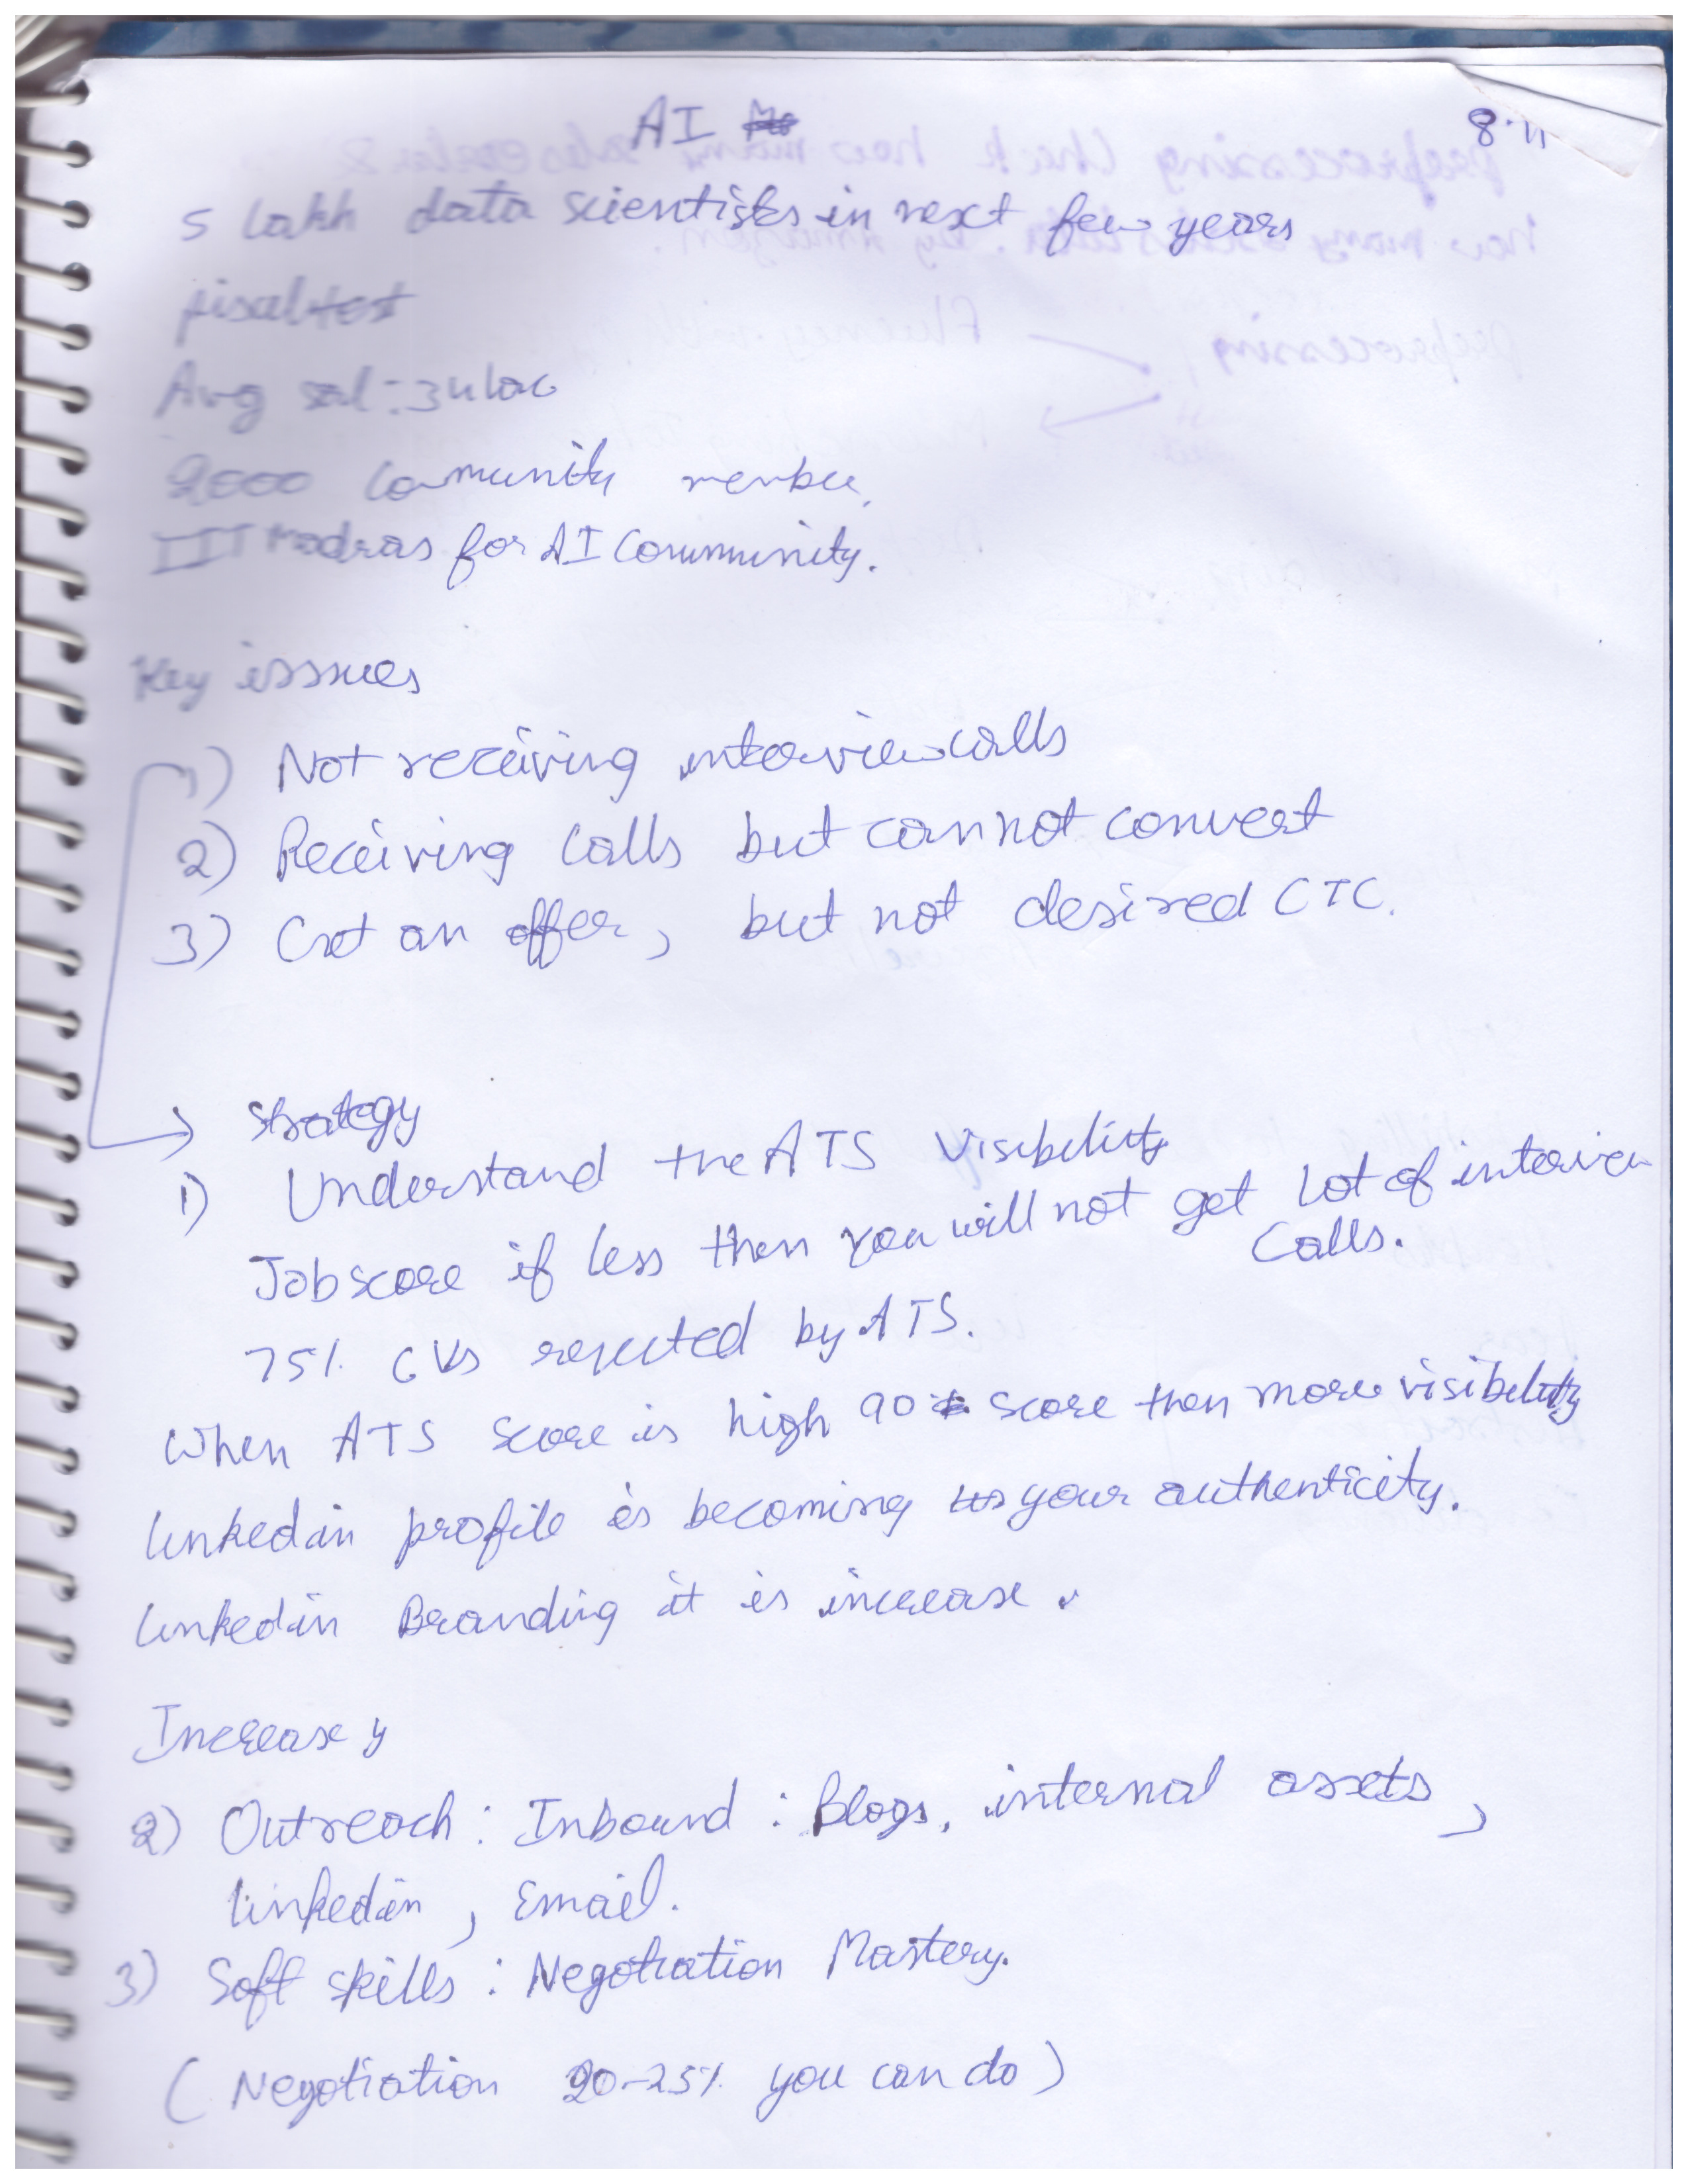 AI
8.11
5 Lakh data scientists in next few years
Avg sal : 34 lac
2000 Community member.
IIT Madras for AI Community.
Key issues
1) Not receiving interview calls
2) Receiving Calls but cannot convert
3) Get an offer, but not desired CTC.
→ Strategy
1) Understand the ATS Visibility
Jobscore if less then you will not get Lot of interview
Calls.
75% CVs rejected by ATS.
When ATS score is high 90 score then more visibility
linkedin profile is becoming your authenticity.
linkedin Branding it is increase.
Increase
2) Outreach : Inbound : Blogs, internal assets,
linkedin, Email.
3) Soft skills : Negotiation Mastery.
(Negotiation 20-25% you can do)